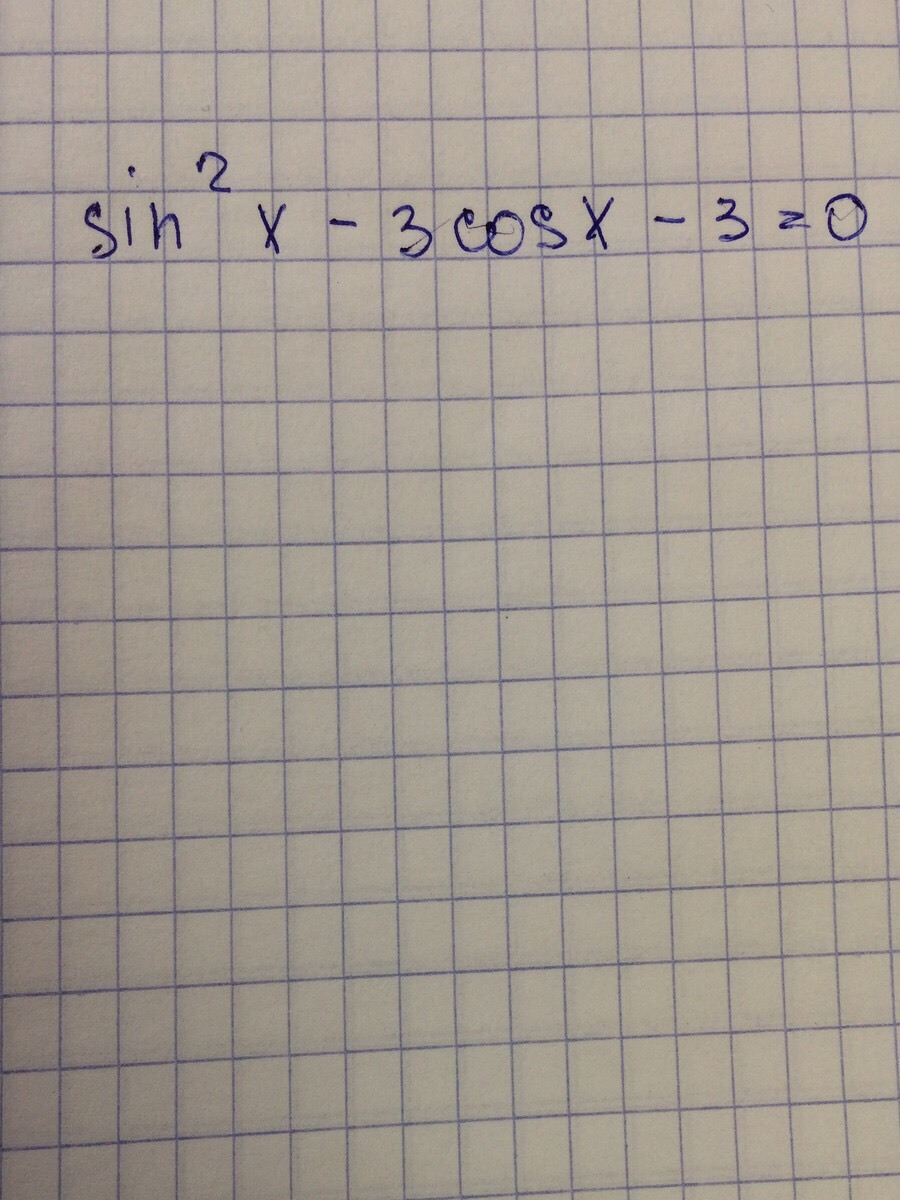 sin² x - 3 cosx - 3 = 0